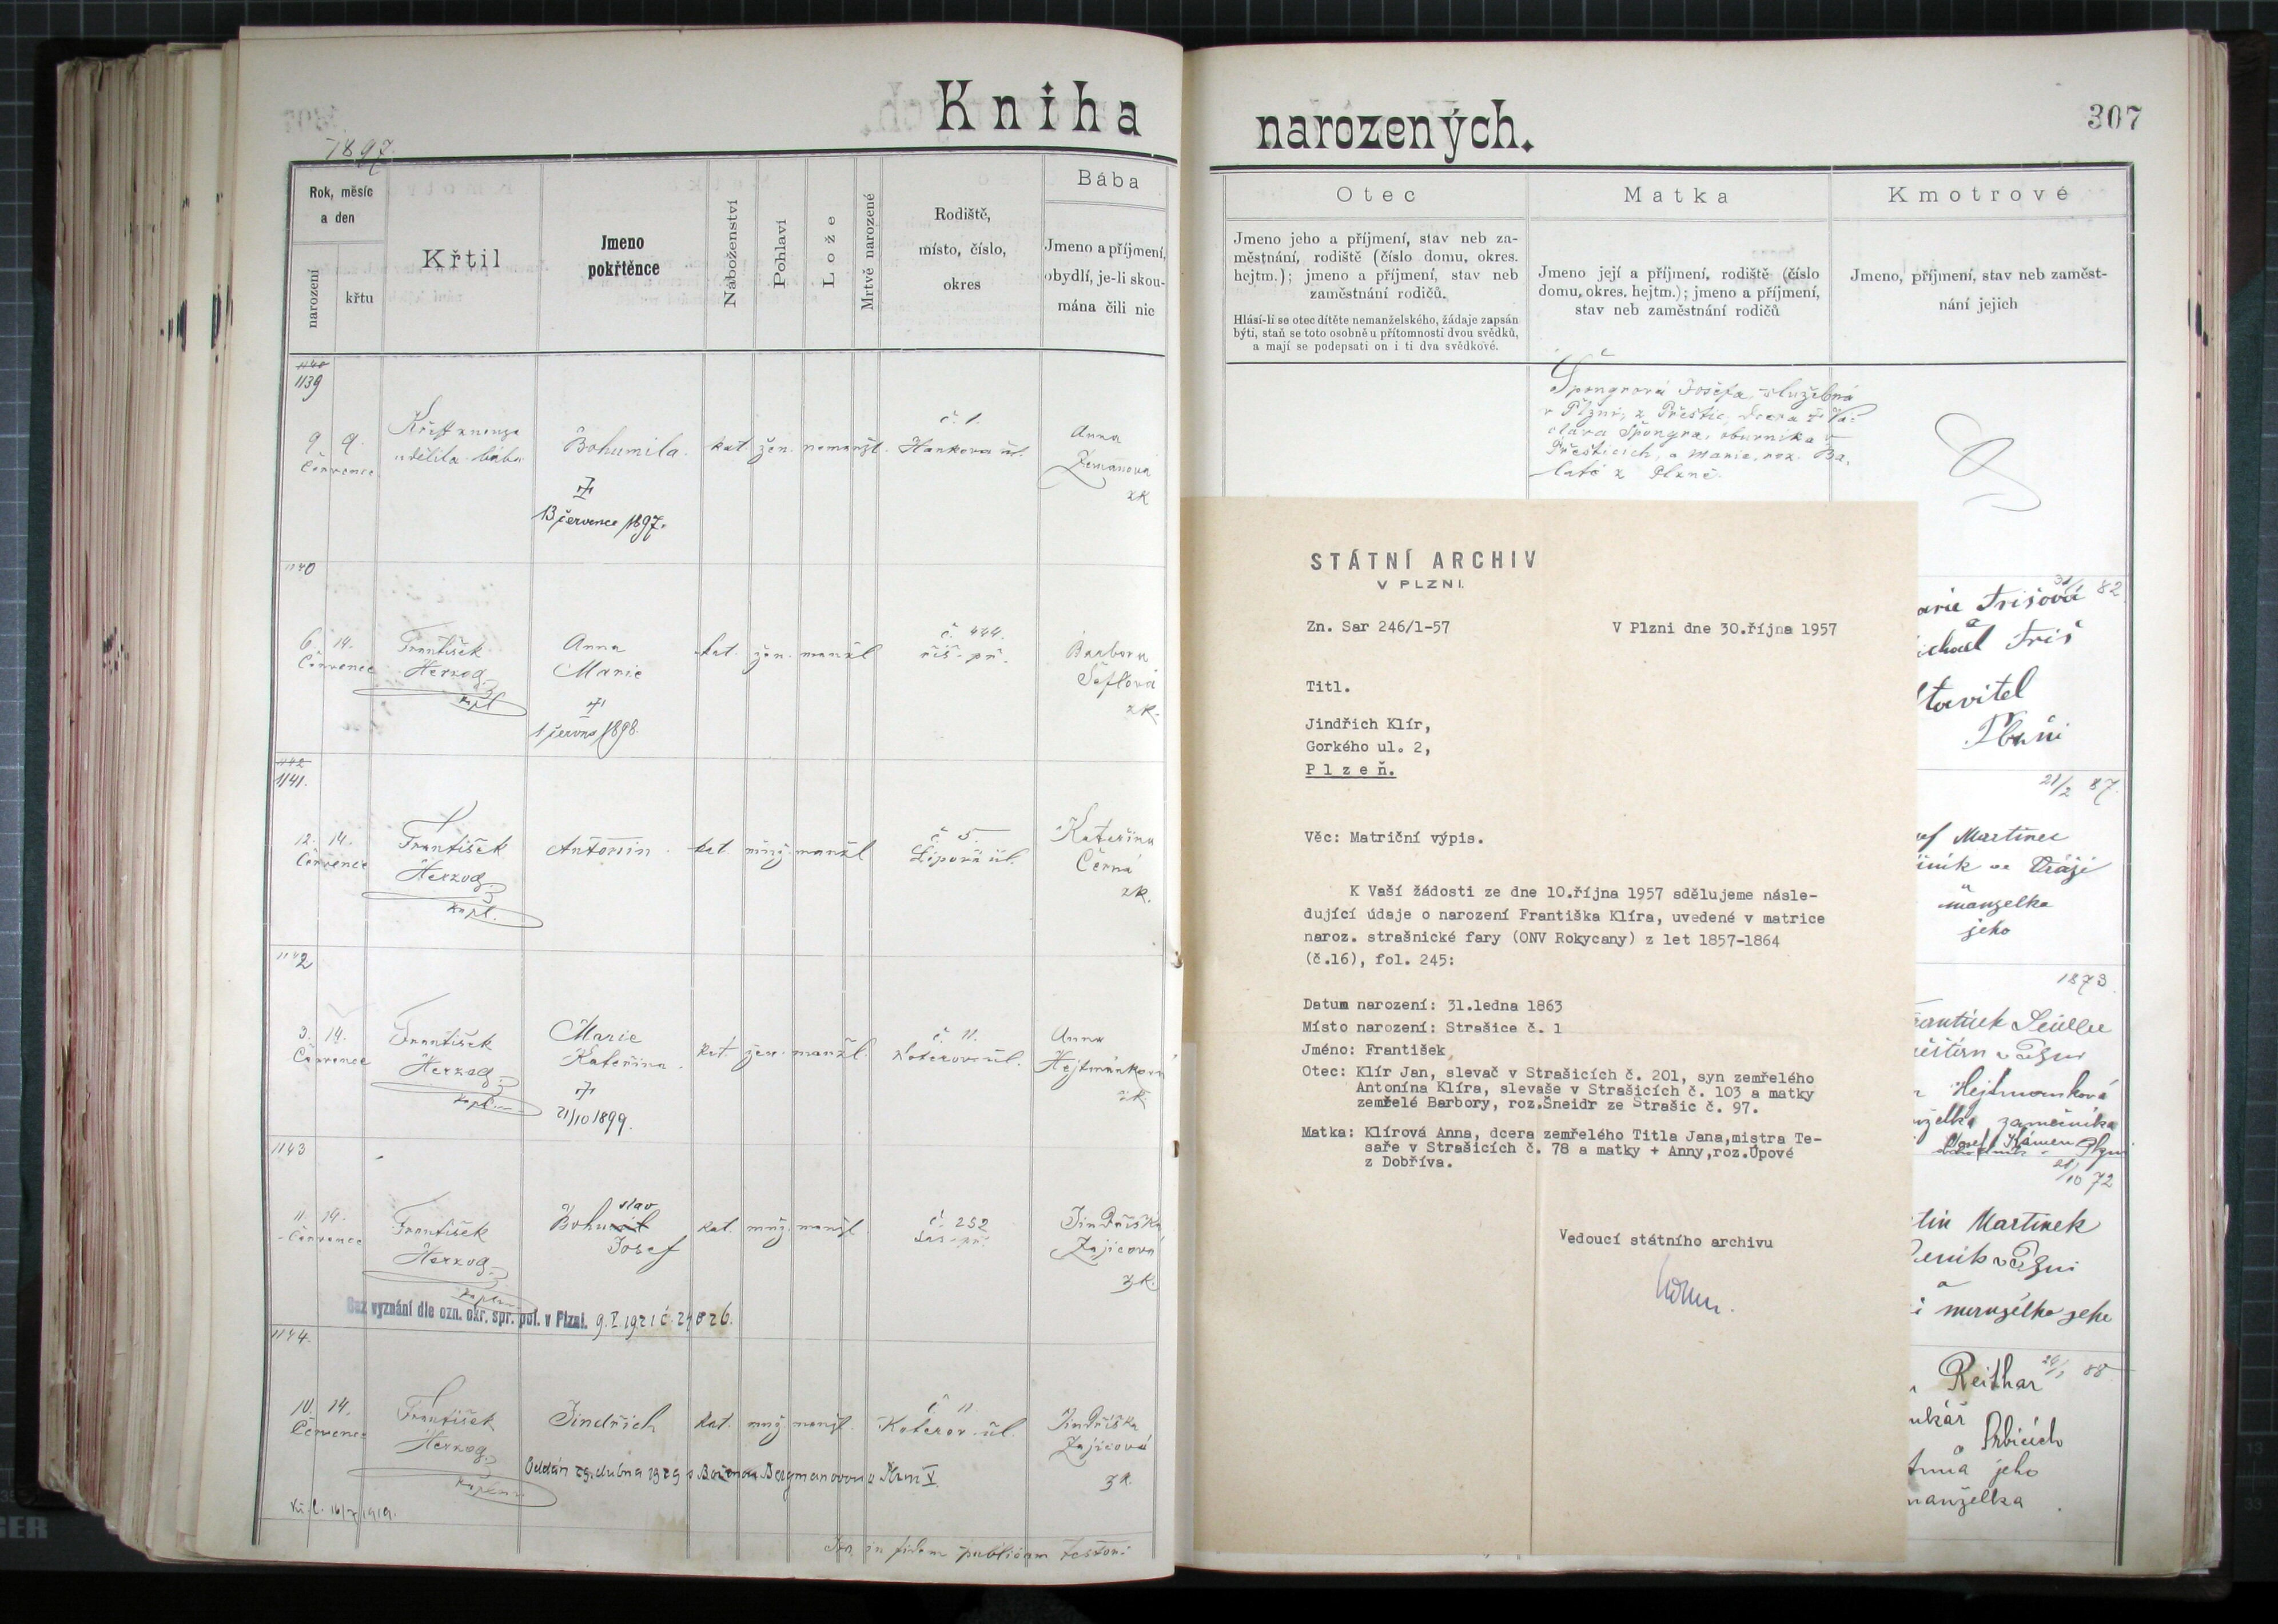 Kniha
1897.
Rok, měsíc
a den
narození
křtu
Křtil
Jmeno
pokřtěnce
Náboženství
Pohlaví
Lože
Mrtvě narozené
Rodiště,
místo, číslo,
okres
Bába
Jmeno a příjmení,
obydlí, je-li skou-
mána čili nic
1139
9 9.
Července
Křest z nouze
udělila bába
Bohumila.
kat. žen. nemanžl.
č. 1.
Hankova ul.
Anna
Zemanova
zk
13 července 1897.
1140
6. 14.
Července
František
Herzog
kapl
Anna
Marie
1 června 1898.
kat. žen. manžl
č. 444.
řís. př.
Barbora
Šeflová
zk.
1142
1141.
12. 14.
Července
František
Herzog
kapl.
Antonín.
kat. muž. manžl
č 5.
Lipová ul.
Kateřina
Černá
zk.
1142
3. 14.
Července
František
Herzog
kapl.
Marie
Kateřina.
21/10 1899.
kat. žen. manžl.
č. 11.
Koterov. ul.
Anna
Hejtmánková
zk
1143
11. 14.
Července
František
Herzog
kaplan
Bohumil
slav
Josef
kat. muž. manžl
č. 252
Jindřiška
Zajícová
zk.
Bez vyznání dle ozn. okr. spr. pol. v Plzni. 9.I 1921 č. 24826.
1144.
10. 14.
Července
František
Herzog
kaplan
Jindřich
kat. muž. manžl.
č 11.
Koterov. ul.
Jindřiška
Zajícová
zk.
Oddán 29. dubna 1929 s Boženou Bergmanovou v Plzni V.
Kř. l. 16/7 1919.
in fidem publicam
narozených.
307
Otec
Jmeno jeho a příjmení, stav neb za-
městnání, rodiště (číslo domu, okres.
hejtm.); jmeno a příjmení, stav neb
zaměstnání rodičů.
Hlásí-li se otec dítěte nemanželského, žádaje zapsán
býti, staň se toto osobně u přítomnosti dvou svědků,
a mají se podepsati on i ti dva svědkové.
Matka
Jmeno její a příjmení, rodiště (číslo
domu, okres. hejtm.); jmeno a příjmení,
stav neb zaměstnání rodičů
Kmotrové
Jmeno, příjmení, stav neb zaměst-
nání jejich
Špongrová Josefa, služebná
v Plzni, z Přeštic, dcera Vá-
clava Špongra, obuvníka v
Přešticích, a Marie, roz. Ba-
laté z Plzně.
STÁTNÍ ARCHIV
V PLZNI.
Zn. Sar 246/1-57
V Plzni dne 30.října 1957
Titl.
Jindřich Klír,
Gorkého ul. 2,
Plzeň.
Věc: Matriční výpis.
K Vaší žádosti ze dne 10.října 1957 sdělujeme násle-
dující údaje o narození Františka Klíra, uvedené v matrice
naroz. strašnické fary (ONV Rokycany) z let 1857-1864
(č.16), fol. 245:
Datum narození: 31.ledna 1863
Místo narození: Strašice č. 1
Jméno: František
Otec: Klír Jan, slevač v Strašicích č. 201, syn zemřelého
Antonína Klíra, slevaše v Strašicích č. 103 a matky
zemřelé Barbory, roz.Šneidr ze Strašic č. 97.
Matka: Klírová Anna, dcera zemřelého Titla Jana,mistra Te-
saře v Strašicích č. 78 a matky + Anny,roz.Úpové
z Dobříva.
Vedoucí státního archivu
31/1 82
arie Trišová
a
ichael Triš
stavitel
Plzni
21/2 87.
ef Martinec
a
manželka
jeho
1873.
rantišek
Hejtmanková
želka zámečníka
Josef Kámen Plzni
21/10 72
tin Martinek
a
manželka jeho
24/1 88
Reithar
a
Anna jeho
manželka